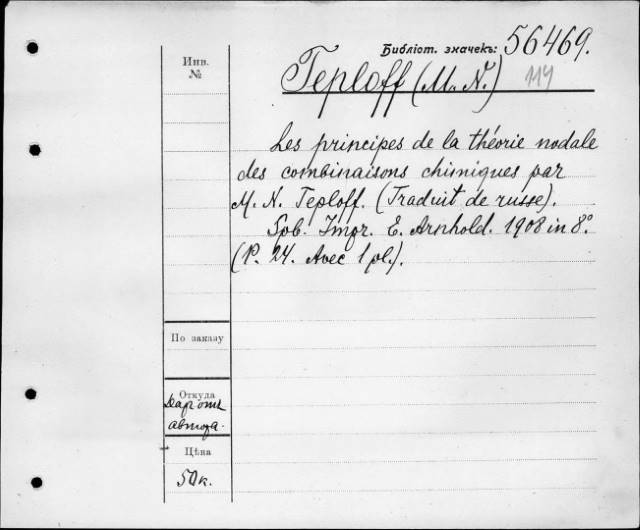 Библіот. значекъ: 56469.
Инв.
№
Teploff (M. N.) 119
Les principes de la théorie nodale
des combinaisons chimiques par
M. N. Teploff. (Traduit de russe).
Spb. Impr. E. Arnhold. 1908 in 8°
(P. 24. Avec 1 pl.).
По заказу
Откуда
Дар отъ
автора.
Цѣна
50 к.